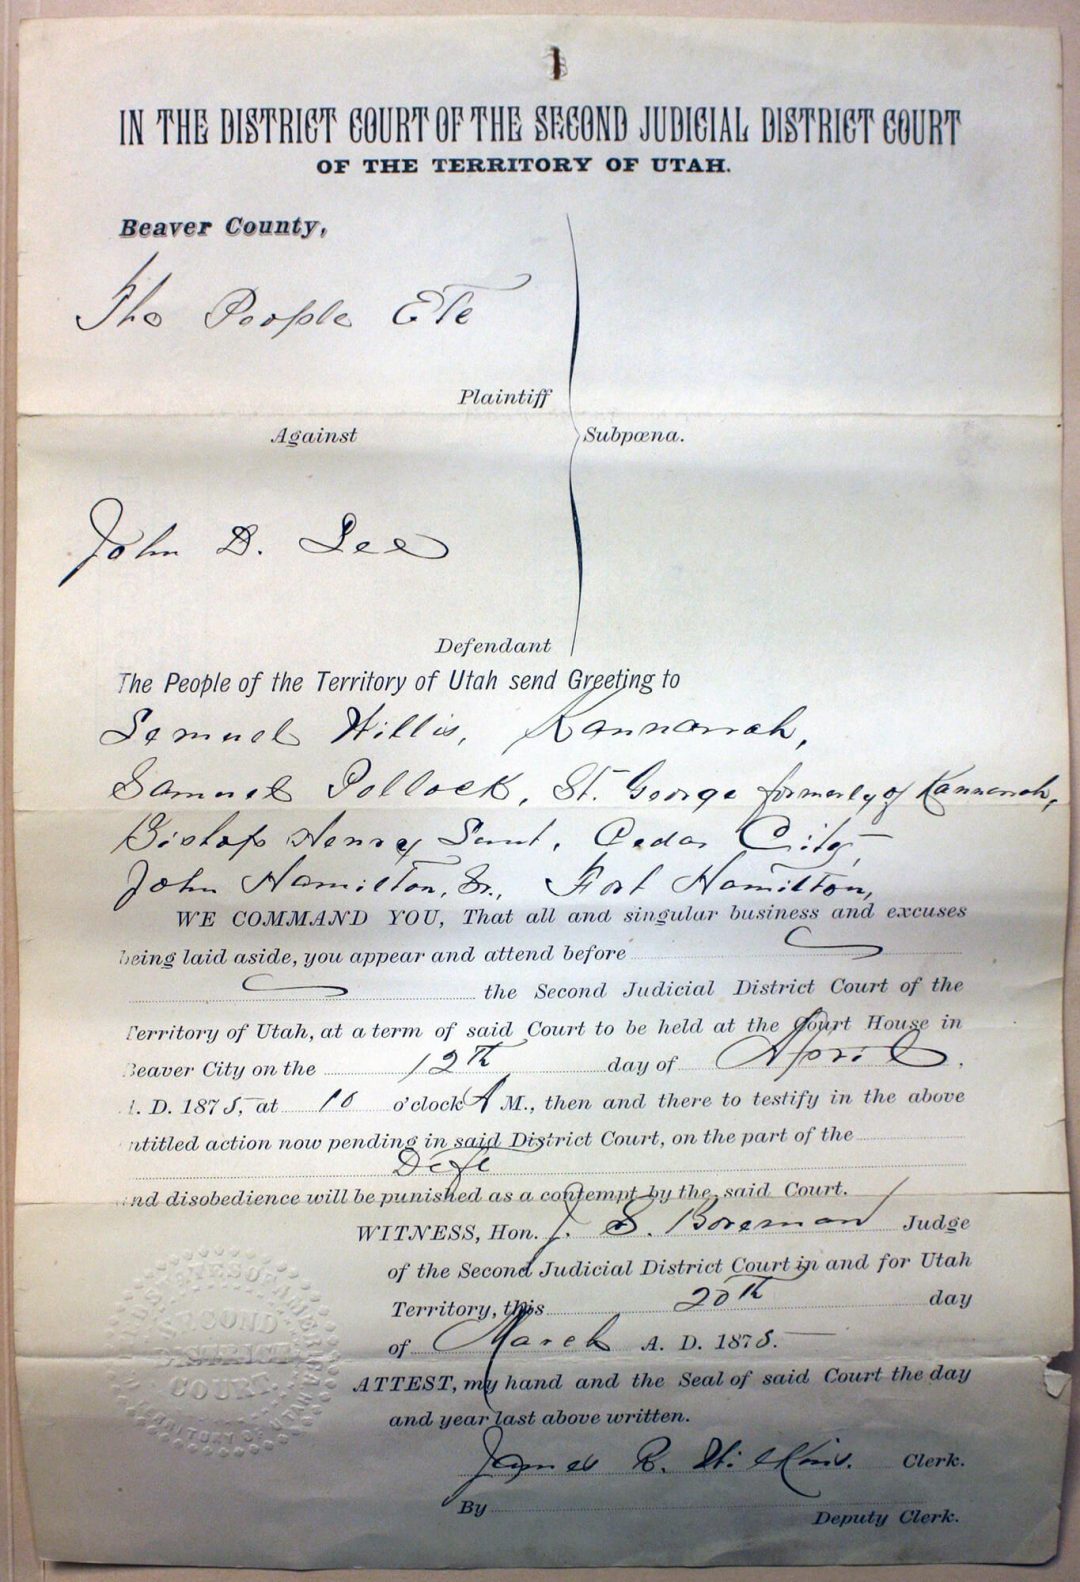 IN THE DISTRICT COURT OF THE SECOND JUDICIAL DISTRICT COURT
OF THE TERRITORY OF UTAH.
Beaver County,
The People Etc
Plaintiff
Against
Subpœna.
John D. Lee
Defendant
The People of the Territory of Utah send Greeting to
Samuel Willis, Kannarrah,
Samuel Pollock, St. George formerly of Kannarrah,
Bishop Henry Lunt, Cedar City,
John Hamilton, Sr., Fort Hamilton,
WE COMMAND YOU, That all and singular business and excuses
being laid aside, you appear and attend before
the Second Judicial District Court of the
Territory of Utah, at a term of said Court to be held at the Court House in
Beaver City on the 12th day of April,
A. D. 1875, at 10 o'clock A M., then and there to testify in the above
ntitled action now pending in said District Court, on the part of the
Deft
and disobedience will be punished as a contempt by the said Court.
WITNESS, Hon. J. S. Boreman Judge
of the Second Judicial District Court in and for Utah
Territory, this 20th day
of March A. D. 1875.
ATTEST, my hand and the Seal of said Court the day
and year last above written.
James R. Wilkins. Clerk.
By
Deputy Clerk.
SECOND
DISTRICT
COURT
TERRITORY OF UTAH